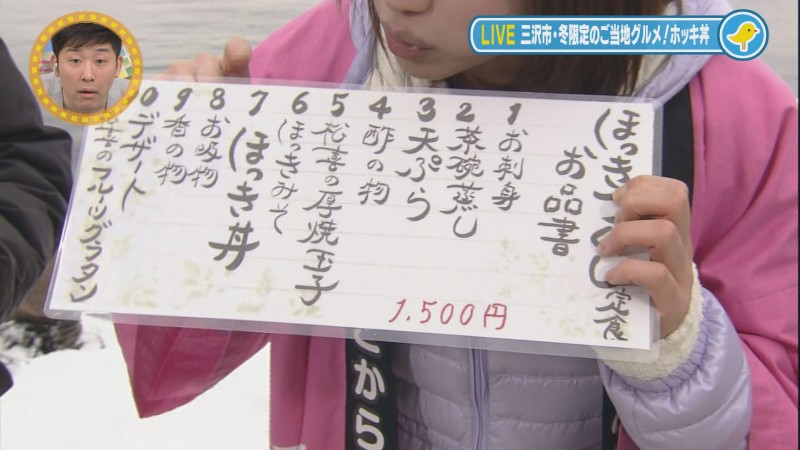 LIVE 三沢市・冬限定のご当地グルメ!ホッキ丼
ほっき
定食
お品書
1 お刺身
2 茶碗蒸し
3 天ぷら
4 酢の物
5 松喜の厚焼玉子
6 ほっきみそ
7 ほっき丼
8 お吸物
9 香の物
0 デザート
喜のフルーツグラタン
1.500円
てから